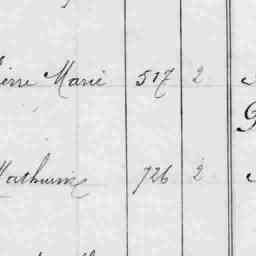 ierre Marie 517 2
Mathurine 726 2